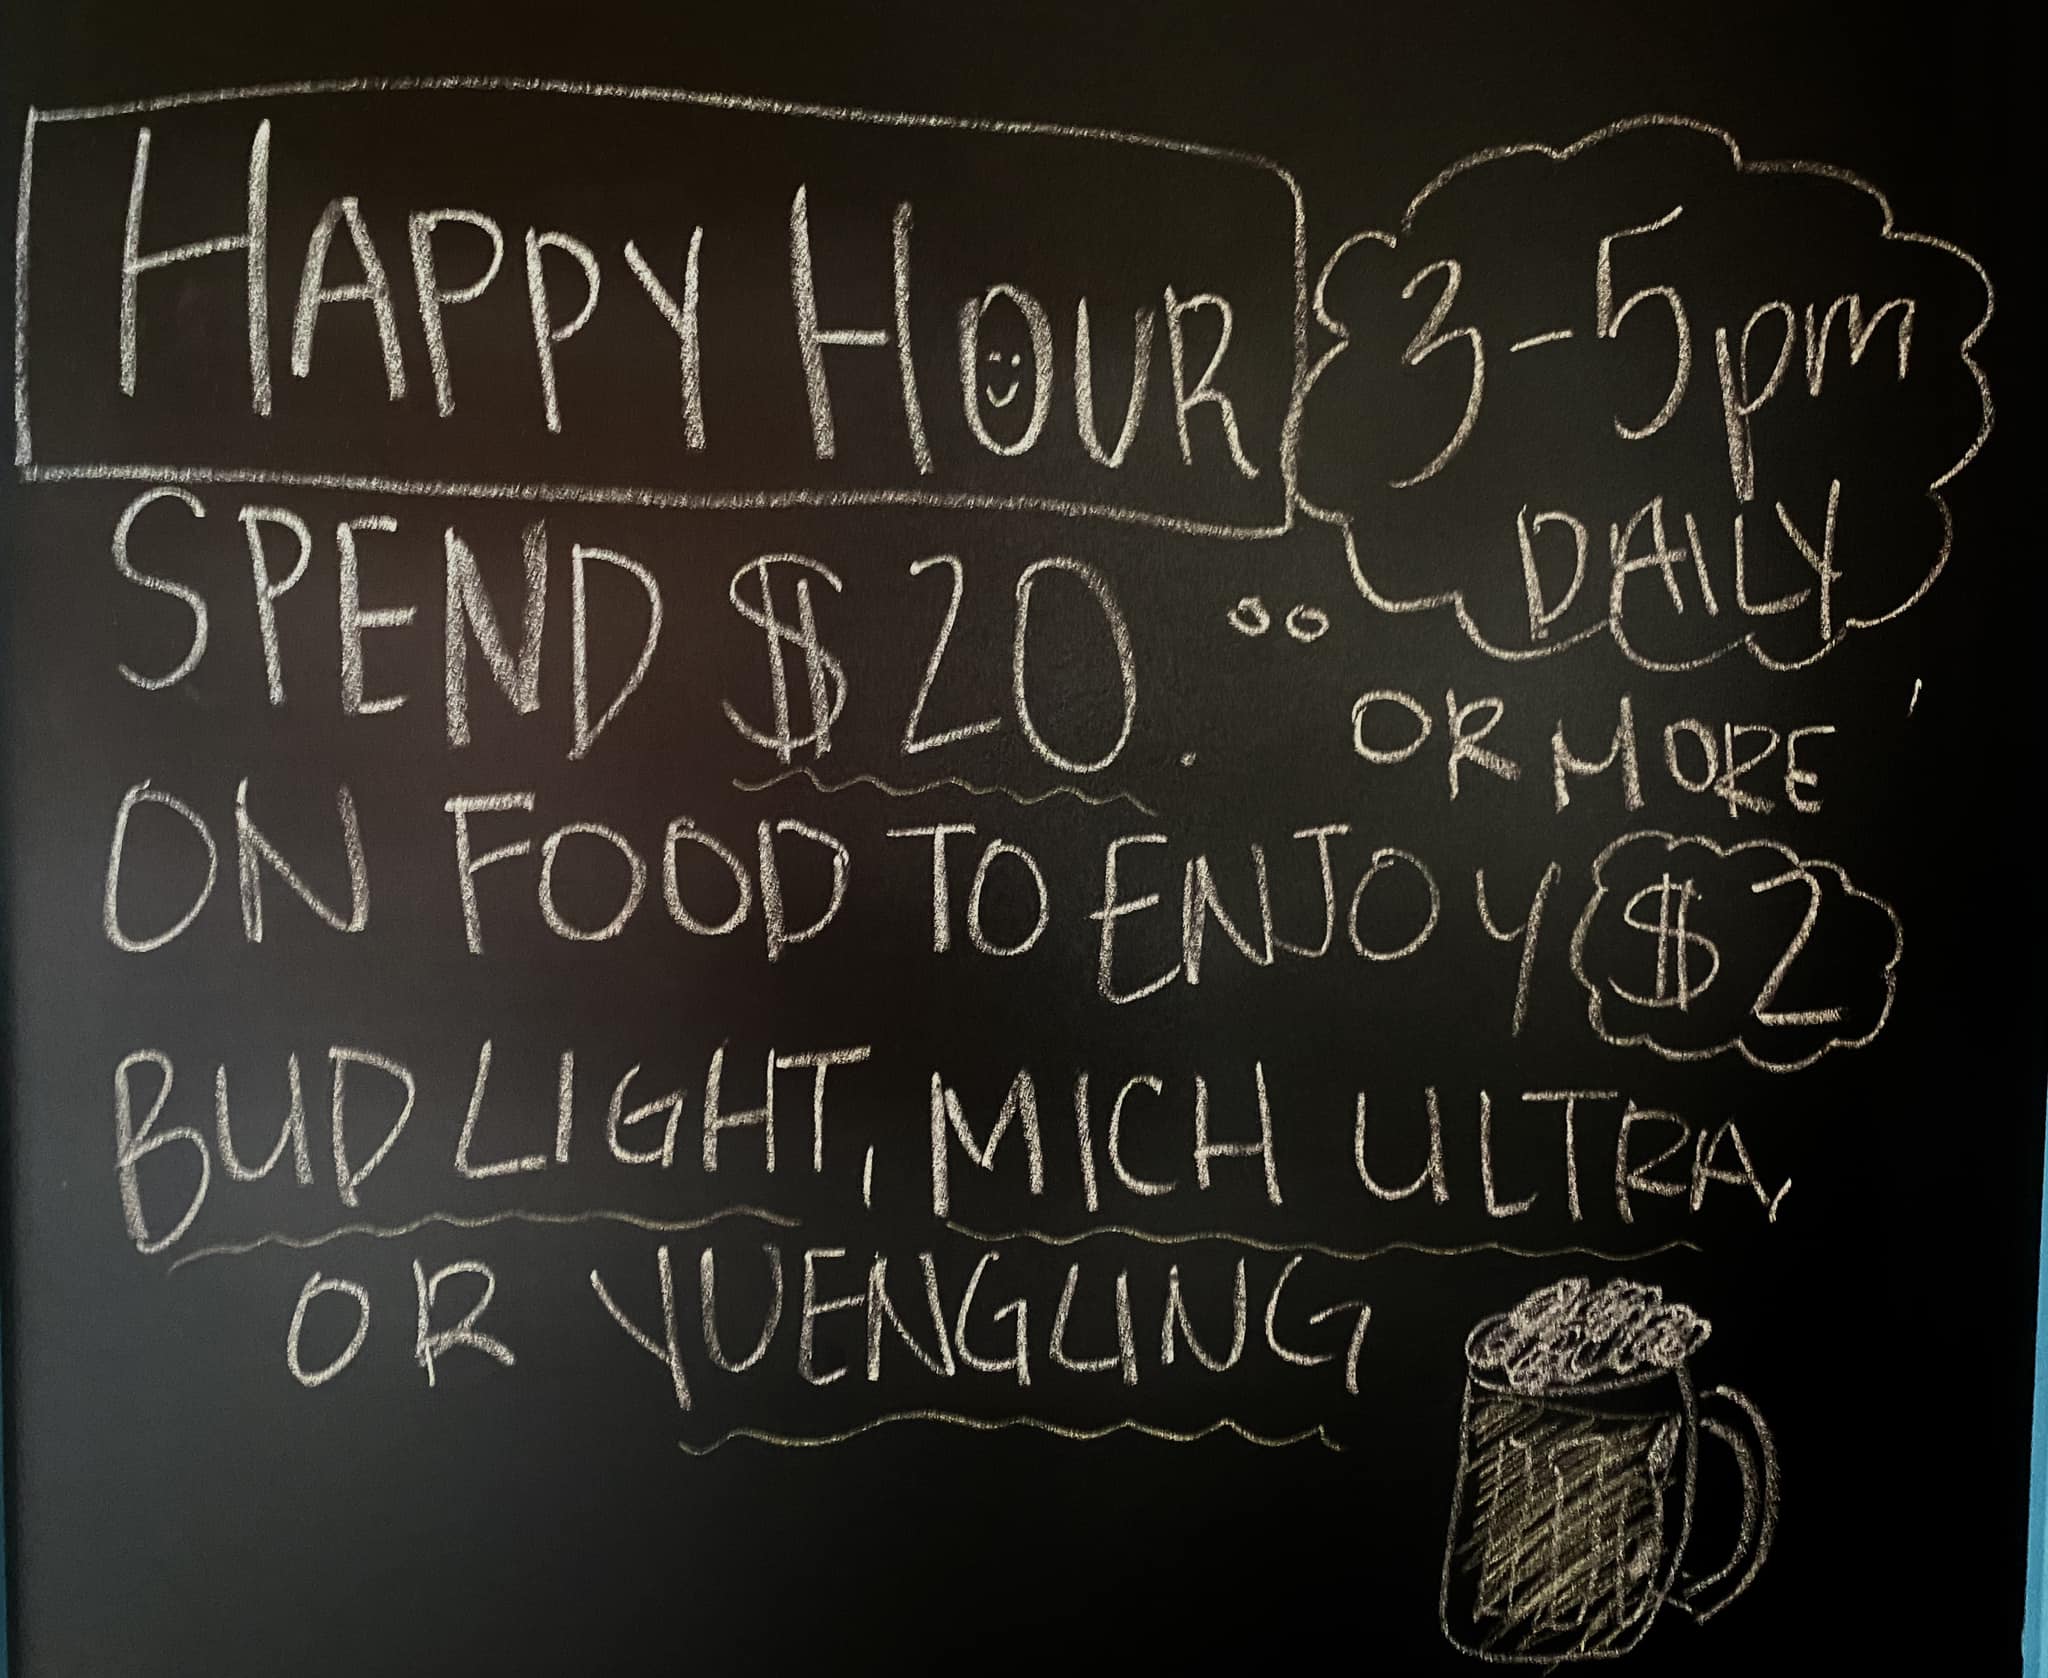 HAPPY HOUR
3-5pm
DAILY
SPEND $20.00
OR MORE
ON FOOD TO ENJOY $2
BUD LIGHT, MICH ULTRA,
OR YUENGLING